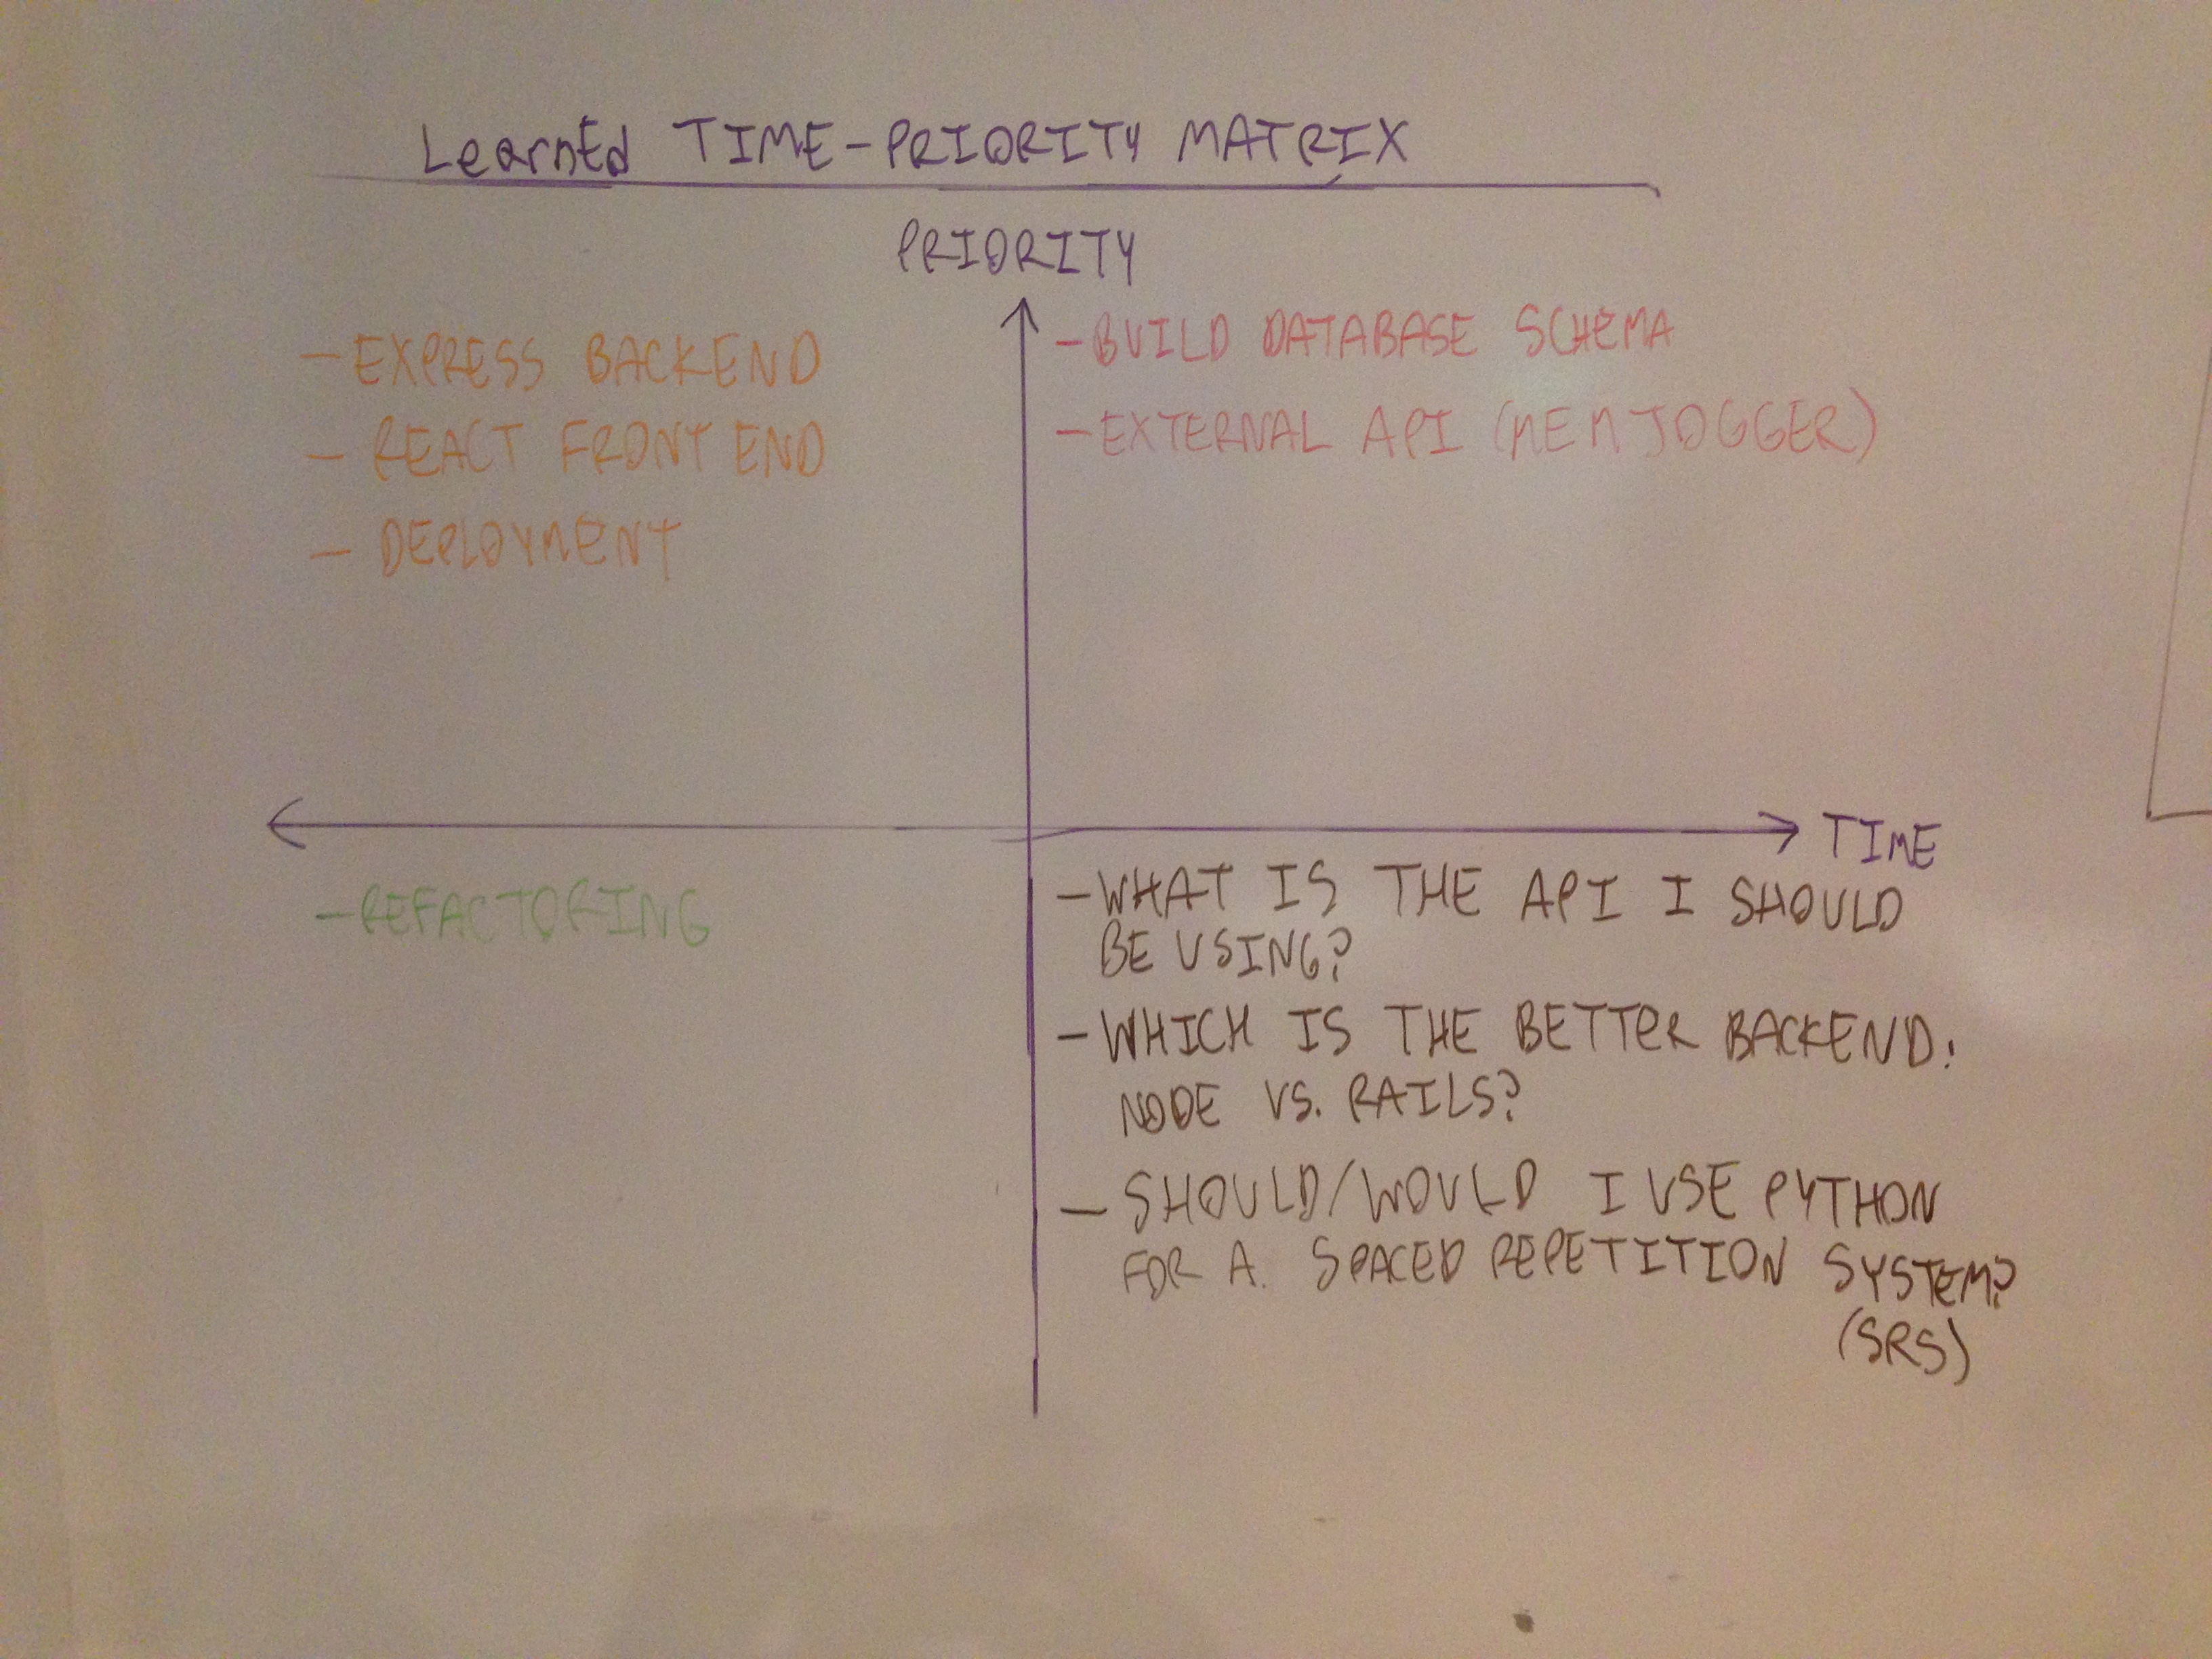 LearnEd TIME-PRIORITY MATRIX
PRIORITY
- EXPRESS BACKEND
- REACT FRONT END
- DEPLOYMENT
- BUILD DATABASE SCHEMA
- EXTERNAL API (MEMJOGGER)
TIME
- REFACTORING
- WHAT IS THE API I SHOULD
BE USING?
- WHICH IS THE BETTER BACKEND:
NODE VS. RAILS?
- SHOULD/WOULD I USE PYTHON
FOR A SPACED REPETITION SYSTEM?
(SRS)